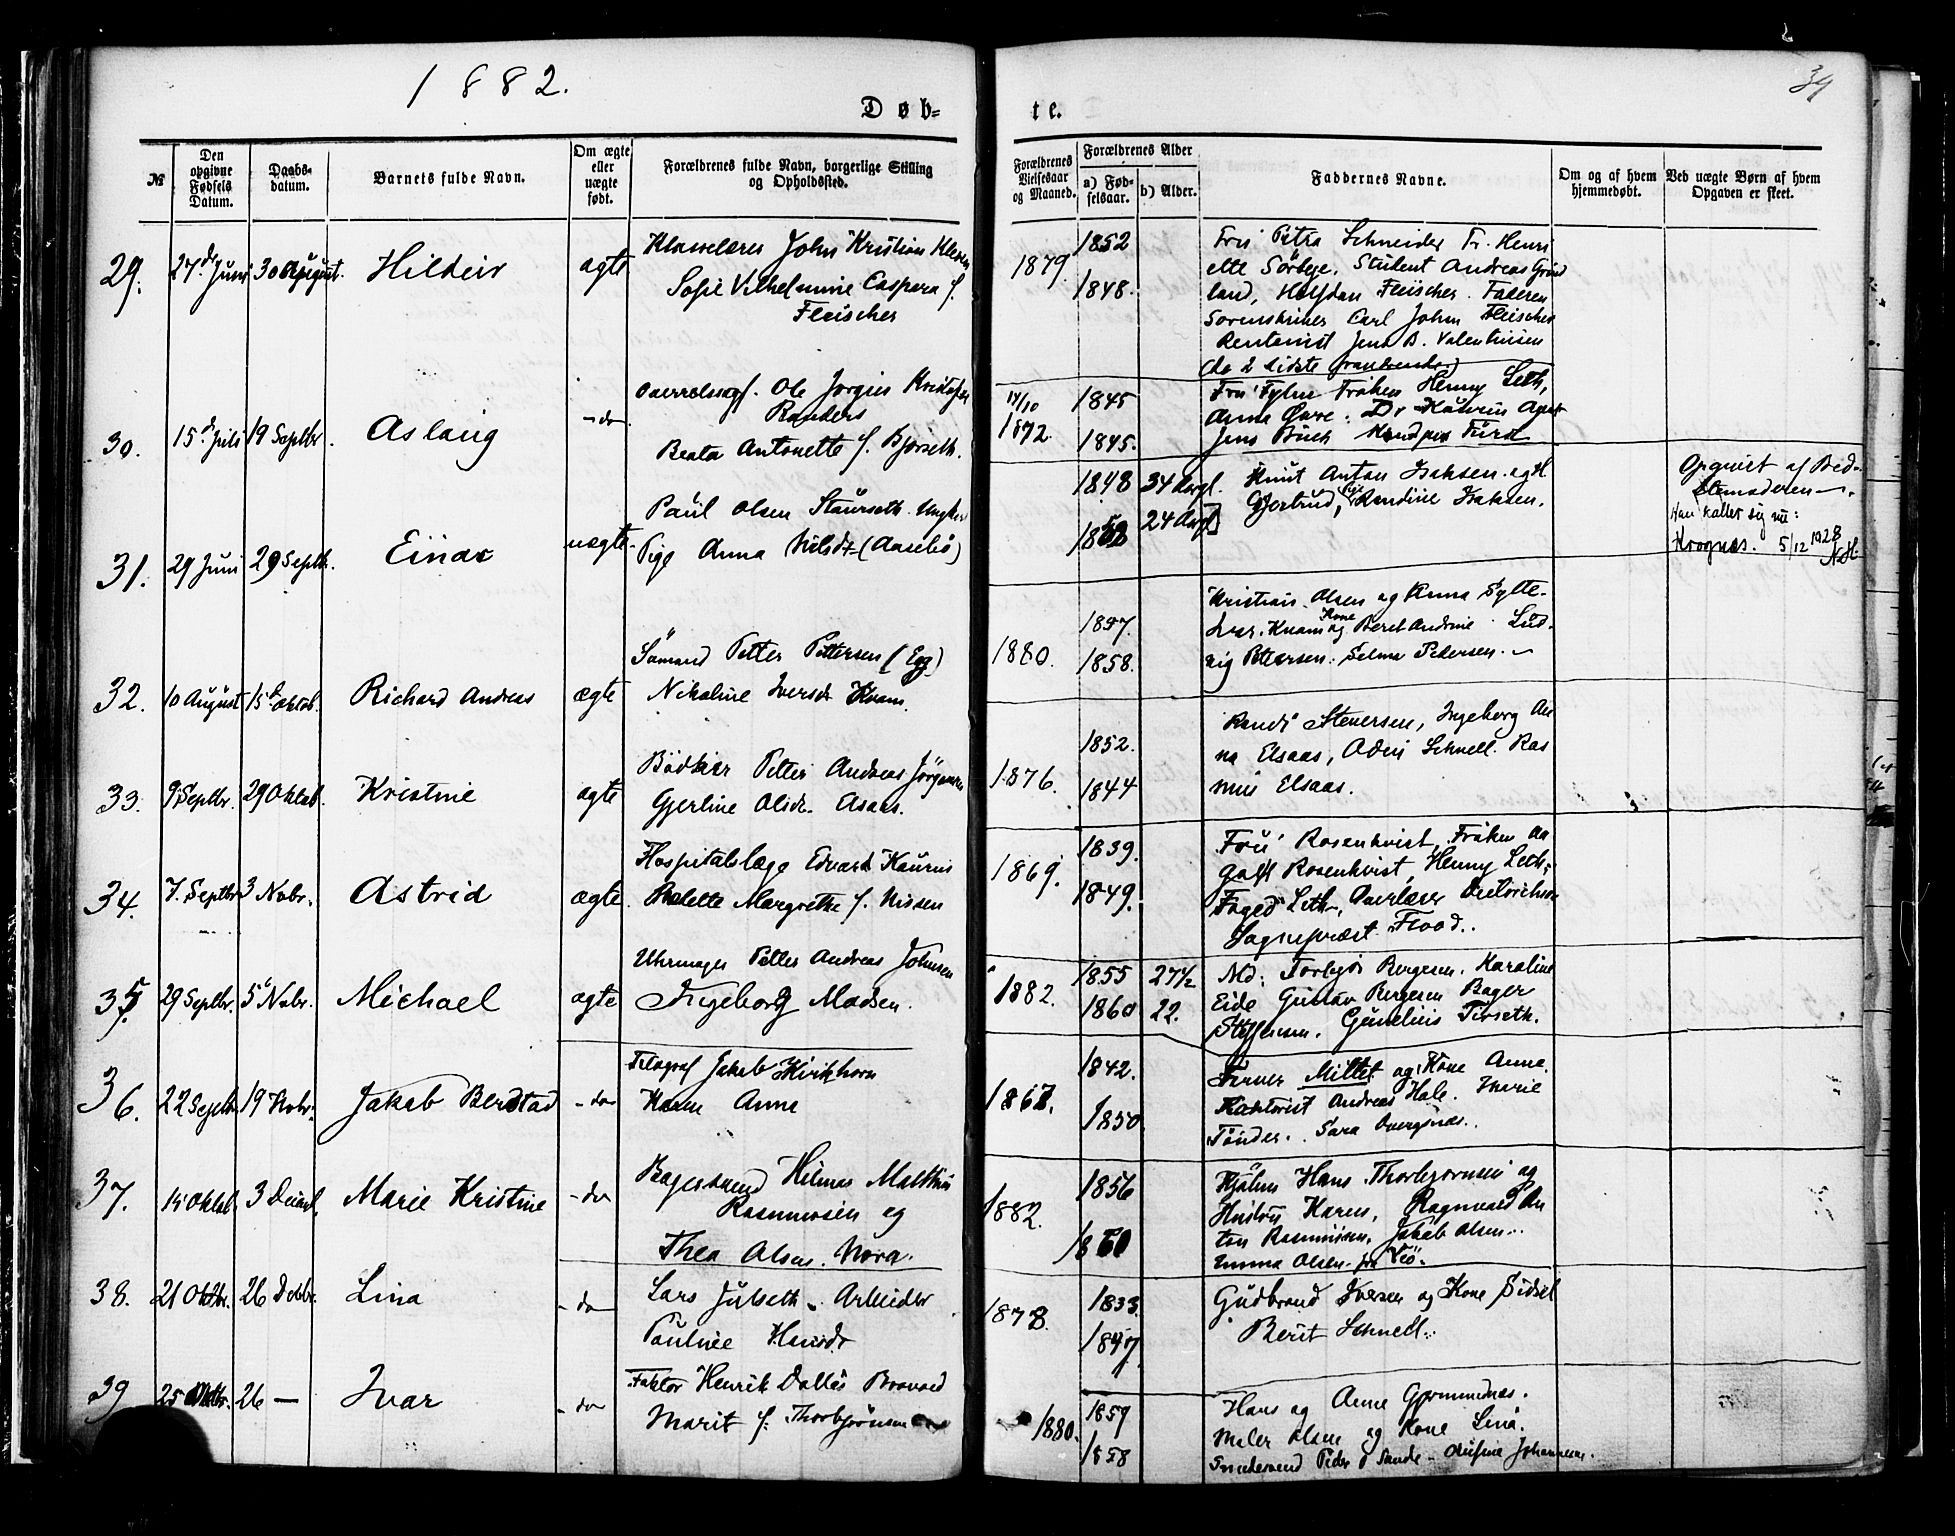 1882.
34
Døb-
te.
№
Den opgivne Fødsels Datum.
Daabs-datum.
Barnets fulde Navn.
Om ægte eller uægte født.
Forældrenes fulde Navn, borgerlige Stilling og Opholdssted.
Forældrenes Vielsesaar og Maaned.
Forældrenes Alder
a) Fød-selsaar.
b) Alder.
Faddernes Navne.
Om og af hvem hjemmedøbt.
Ved uægte Børn af hvem Opgaven er skeet.
29. 27de Juni 30 August. Hildeir ægte
John Kristian
Sofie Vilhelmine Caspara f.
Fleischer
1879. 1852
1848.
Fru Petra Schneider Fr. Henri
ette Sörbye. Student Andreas Grönd
land, Halfdan Fleischer. Faderen
Sorenskriver Carl Johm Fleischer
Rentenist Jens B. Valentinsen
(de 2 sidste fraværende)
30. 15de Juli 19 Septbr. Aslaug - do
Ole Jørgen Kristofer
Randers
Beata Antonette f. Bjørseth.
14/10 1872. 1845
1845.
Frøken Henny Leth,
Jens Buch
31. 29 Juni 29 Septbr. Einar uægte
Paul Olsen Staurseth. Ungkar
Pige Anna Nilsdt (Aaselie)
1848 34 Aargl.
24 Aargl
Knut Anton Isaksen og H
Gjertrud, Randine Isaksen.
Opgivet af Bed-
stemoderen
Han kaller sig nu:
Krognes. 5/12 1928
N.H.
32. 10 August 15de Oktob. Richard Andreas ægte
Sömand Petter Pettersen (Egg)
Nikoline Iversdr Kvam.
1880. 1857.
1858.
Kristian Olsen og Anna Sylte-
Iver Kvam og Kone Beret Andrine Lud-
vig Petersen. Selma Pedersen.
33. 9 Septbr. 29 Oktob. Kristine ægte
Bödker Petter Andreas Jörgensen
Gjerline Olsdr. Asaas.
1876. 1852.
1844
Randi Stenersen, Ingeborg An
na Elsaas, Schnell. Ras
mus Elsaas.
34. 7. Septbr 3 Novbr. Astrid ægte.
Hospitalslæge Edvard Kaurin
Margrethe f. Nissen
1869. 1839.
1849.
Fru Rosenkvist, Frøken Aa
got Rosenkvist, Henny Leth,
Foged Leth, Overlærer
Sognepræst Flood.
35. 29 Septbr. 5te Novbr. Michael ægte
Uhrmager Petter Andreas Johnsen
Ingeborg Madsen.
1882. 1855 27½
1860 22.
Md: Torbjør Bergesen. Karoline
Eide Gustav Bergesen Bager
Steffensen. Gunelius Tirseth.
36. 22 Septbr 19 Novbr. Jakob Berdstad - do
Telegraf Jakob Kirkhorn
Kone Anne
1867. 1842.
1850
Millet og Kone Anne.
Andreas Hole. Marie
Tönder. Sara Overgnas.
37. 14 Oktob. 3 Decemb. Marie Kristine - do
Bagersvend Hilmar Matthias
Rasmussen og
Thea Olsen. Nora.
1882. 1856
1860
Hjalm Hans Thorbjornsen og
Hustru Karen, Ragnvald An
ton Rasmussen, Jakob Olsen.
Emma Olsen fra Veö.
38. 21 Oktbr. 26 Decbr. Lina - do
Lars Julseth. Arbeider
Pauline Hansdr
1878. 1833.
1847.
Gudbrand Iversen og Kone Sidsel
Berit Schnell.
39 25 Oktbr. 26 — Ivar - do
Faktor Henrik Dallas Brovold
Marit f. Thorbjörnsen
1880. 1859
1858
Hans og Anne Gjermundnæs.
Maler Olsen og Kone Lina.
Smedsvend Peder Sande. Johannesen.